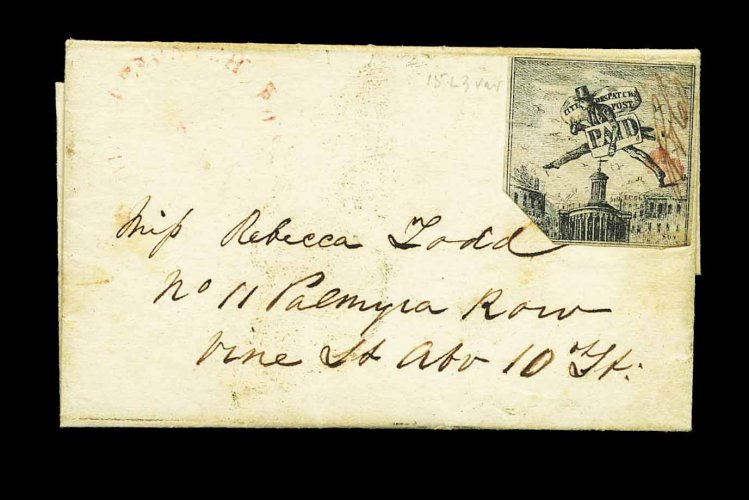 15L3 var
CITY DESPATCH
POST
PAID
Miss Rebecca Todd
No 11 Palmyra Row
Vine St Abv 10 St.